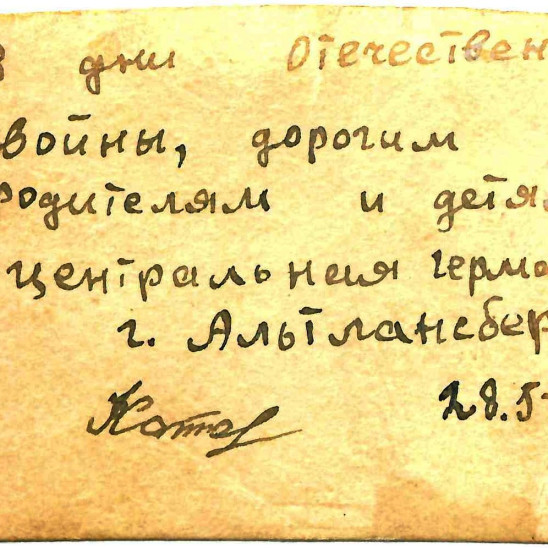 В дни Отечествен
войны, дорогим
родителям и детя
центральная герма
г. Альтлансбер
28.5